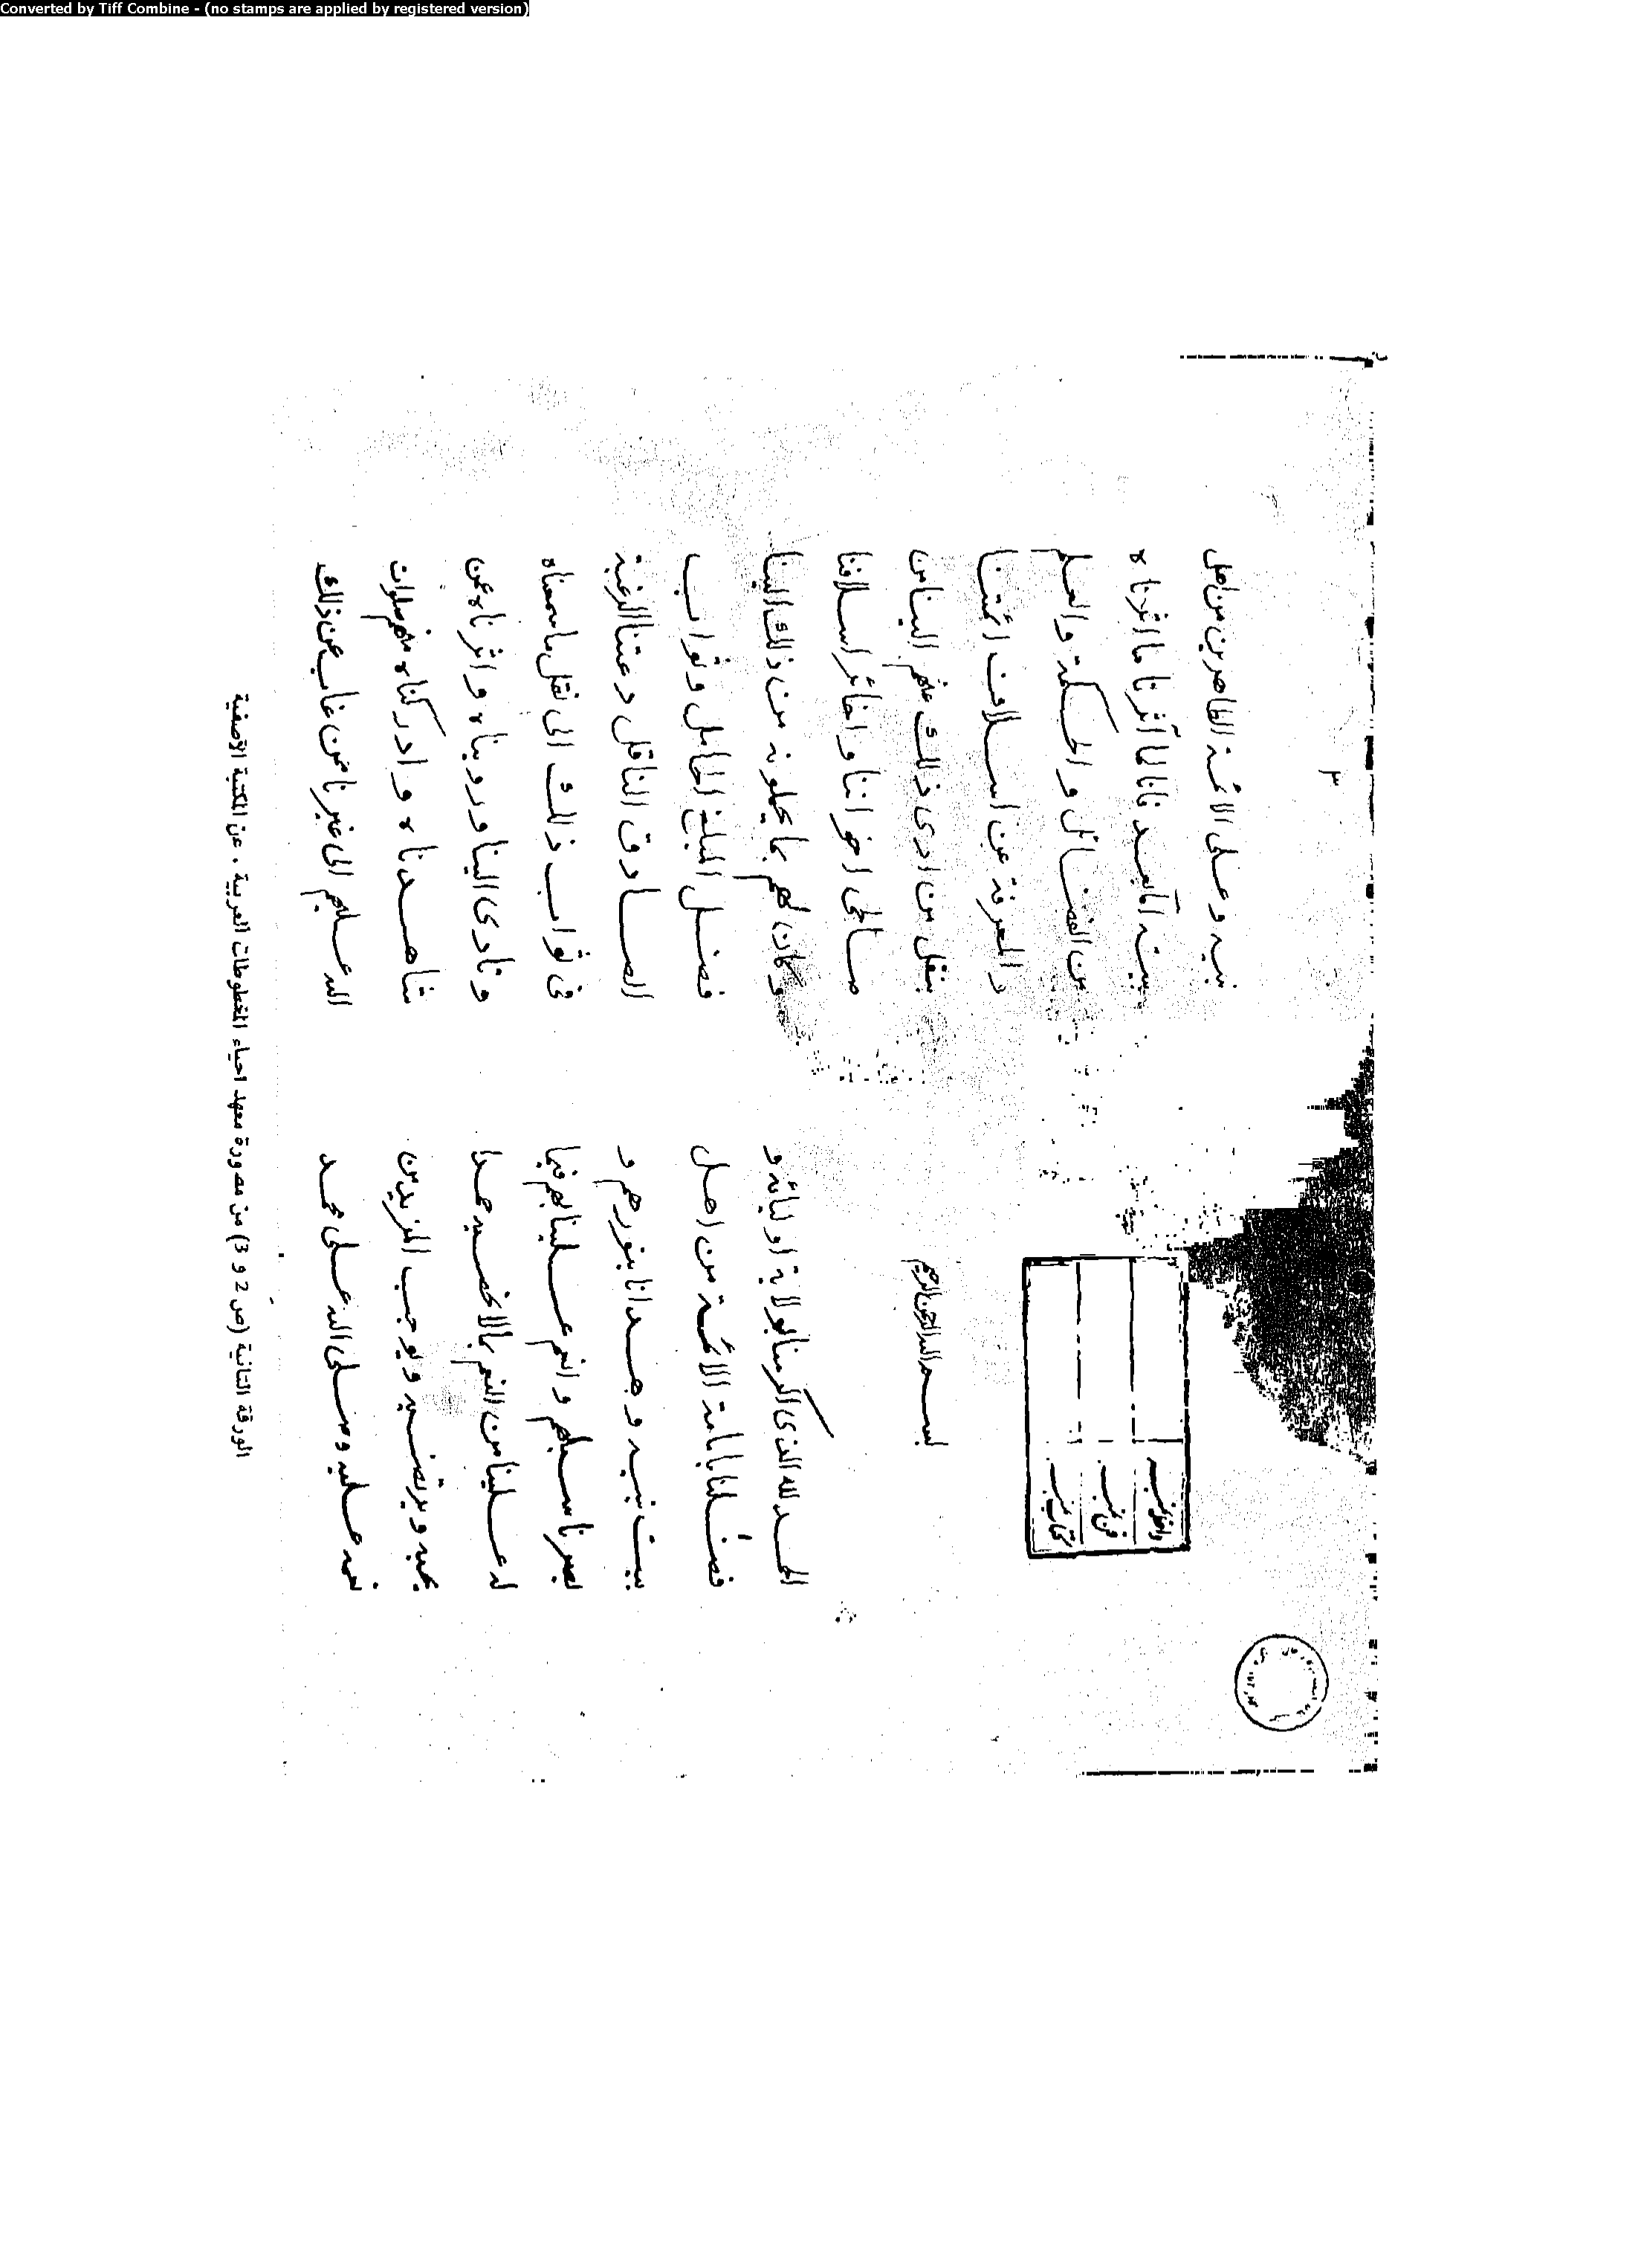 Converted by Tiff Combine - (no stamps are applied by registered version)
داخله نمبر
فن نمبر
كتاب نمبر
بسم الله الرحمن الرحيم
الحمد لله الذى اكرمنا بولاية اوليائه و
فضلنا بامامة الائمة من اهل
بيت نبيه وهدانا بنورهم و
بصرنا سبيلهم وانعم علينا بهم فيما
له علينا من النعم بما لا نحصيه حمدا
يحبه ويرتضيه ويوجب المزيد من
نعمه عليه وصلى الله على محمد
٣
نبيه وعلى الائمة الطاهرين من اهل
بيته اما بعد فانا لما آثرنا ما اثرناه
من الفضائل والحكمة والعلم
والمعرفة عن اسلاف ائمتنا
بنقل من ادى ذلك عنهم الينا من
صالحى اخواننا واخائر اسلافنا
وكان لهم بما يحملونه من ذلك الينا
فضل المبلغ الحامل وثواب
الصادق الناقل دعتنا الرغبة
فى ثواب ذلك الى نقل ما سمعناه
وتادى الينا ورويناه واثرناه عن
شاهدناه وادركناه منهم صلوات
الله عليهم الى غيرنا ممن غاب عن ذلك
الورقة الثانية (ص 2 و 3) من مصورة معهد احياء المخطوطات العربية . عن المكتبة الآصفية